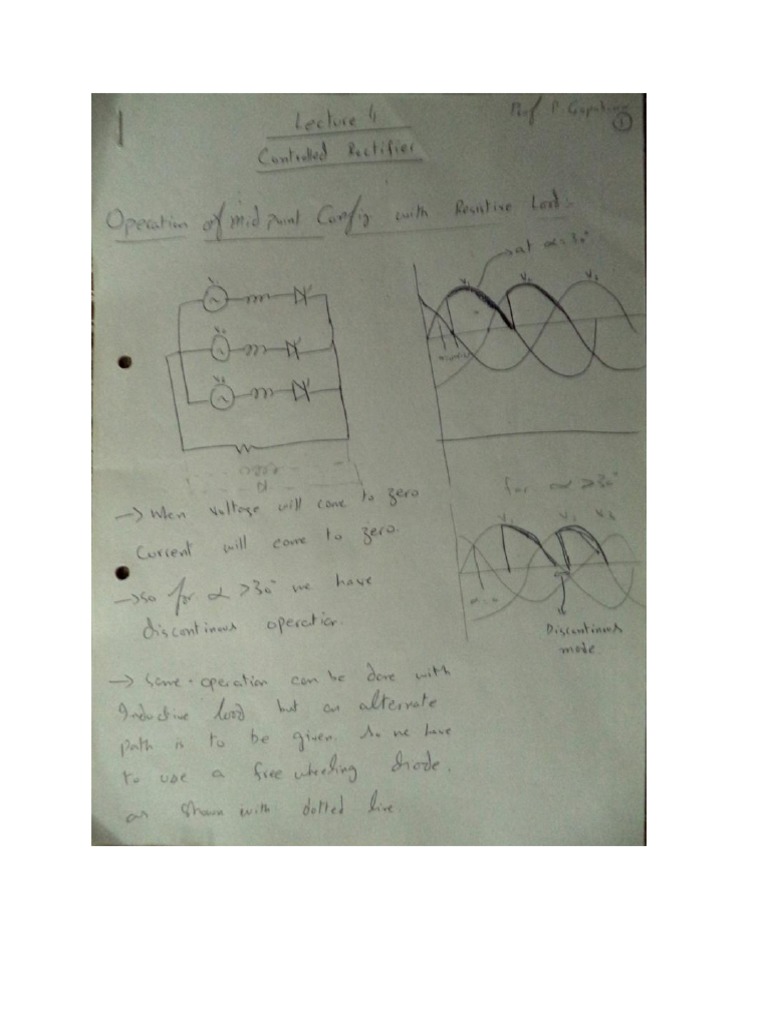 Lecture 4
Prof P.
1
Controlled Rectifier
Operation of mid point Config with Resistive Load:-
at α=30°
V₁
V₂
V₃
for α>30°
→ When voltage will come to zero
Current will come to zero.
→ so for α >30° we have
discontinous operation.
V₁ V₂ V₃
α=0
Discontinous
mode
→ Same operation can be done with
Inductive load but an alternate
path is to be given. So we have
to use a free wheeling diode.
as shown with dotted line.